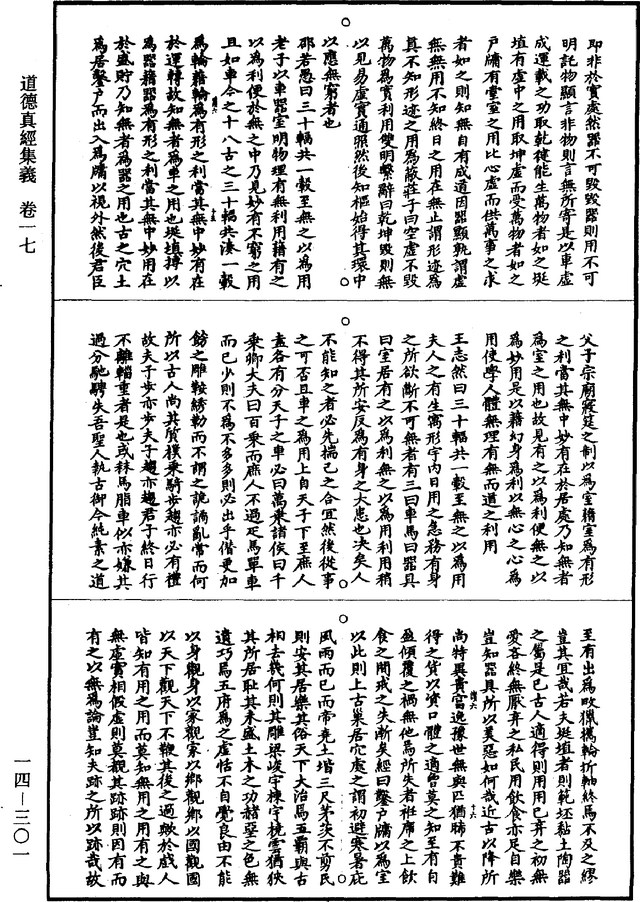 道德真經集義　卷一七
即非於實處然器不可毀毀器則用不可
明託物顯言非物則言無所寄是以車虛
成運載之功取乾健能生萬物者如之埏
埴有虛中之用取坤虛而受萬物者如之
戶牖有堂室之用比心虛而供萬事之求
者如之則知無自有成道因器顯孰謂虛
無無用不知終日之用在無止謂形迹為
真不知形迹之用為蔽莊子曰空虛不毀
萬物為實利用雙明繫辭曰乾坤毀則無
以見易虛實通照然後知樞始得其環中
以應無窮者也
邵若愚曰三十輻共一轂至無之以為用
老子以車器室明物理有無利用藉有之
以為利便於無之中乃見妙有不窮之用
且如車今之十八古之三十輻共湊一轂
為輪藉輪為有形之利當其無中妙有在
於運轉故知無者為車之用也埏埴摶以
為器藉器為有形之利當其無中妙用在
於盛貯乃知無者為器之用也古之穴土
為居鑿戶而出入為牖以視外然後君臣
父子宗廟寢筵之制以為室藉室為有形
之利當其無中妙有在於居處乃知無者
為室之用也故見有之以為利便無之以
為妙用是以藉幻身為利以無心之心為
用使學人體無理有無而道之利用
王志然曰三十輻共一轂至無之以為用
夫人之有生寓形宇內日用之急務有身
之所欲斷不可無者有三曰車馬曰器具
曰室居有之以為利無之以為用利用稍
不得其所安反為有身之大患也決矣人
不能知之者必先揣己之合宜然後從事
之可否且車之為用上自天子下至庶人
蓋各有分天子之車必曰萬乘諸侯曰千
乘卿大夫曰百乘而庶人不過疋馬單車
而已少則不為不多多則必出乎僭更加
飾之雕鞍綉勒而不謂之詭譎亂常而何
所以古人尚其質樸乘騎步趨亦必有禮
故夫子步亦步夫子趨亦趨君子終日行
不離輜重者是也或秣馬脂車似亦嫌其
過分馳騁失吾聖人執古御今純素之道
至有出為畋獵攜輪折軸終焉不及之繆
豈其宜哉若夫埏埴者則範坯黏土陶器
之屬是巳古人適得則用用巳弃之初無
愛吝終無厭弃之私民用飲食亦足自樂
豈知器具所以美惡如何哉近古以降所
尚特異貴富逸豫世無與匹猶膝不貴難
得之貨以資口體之適曾莫之知至有自
盈傾覆之禍無他焉所失者袵席之上飲
食之間戒之失斯矣經曰鑿戶牖以為室
以此則上古巢居穴處之謂初避寒暑庇
風雨而已而帝堯土堦三尺茅茨不剪民
則安其居樂其俗天下大治焉五霸與古
相去幾何則其雕梁峻宇棟宇橈雲猶狹
其所居耻其未盛土木之功赭堊之色無
遺巧焉五府為之虛恬不自覺良由不能
以身觀身以家觀家以鄉觀鄉以國觀國
以天下觀天下不鞭其後之過歟於戲人
皆知有用之用而莫知無用之用有之與
無虛實相假虛則莫觀其跡跡則因有而
有之以無為論豈知夫跡之所以跡哉故
一四—三〇一